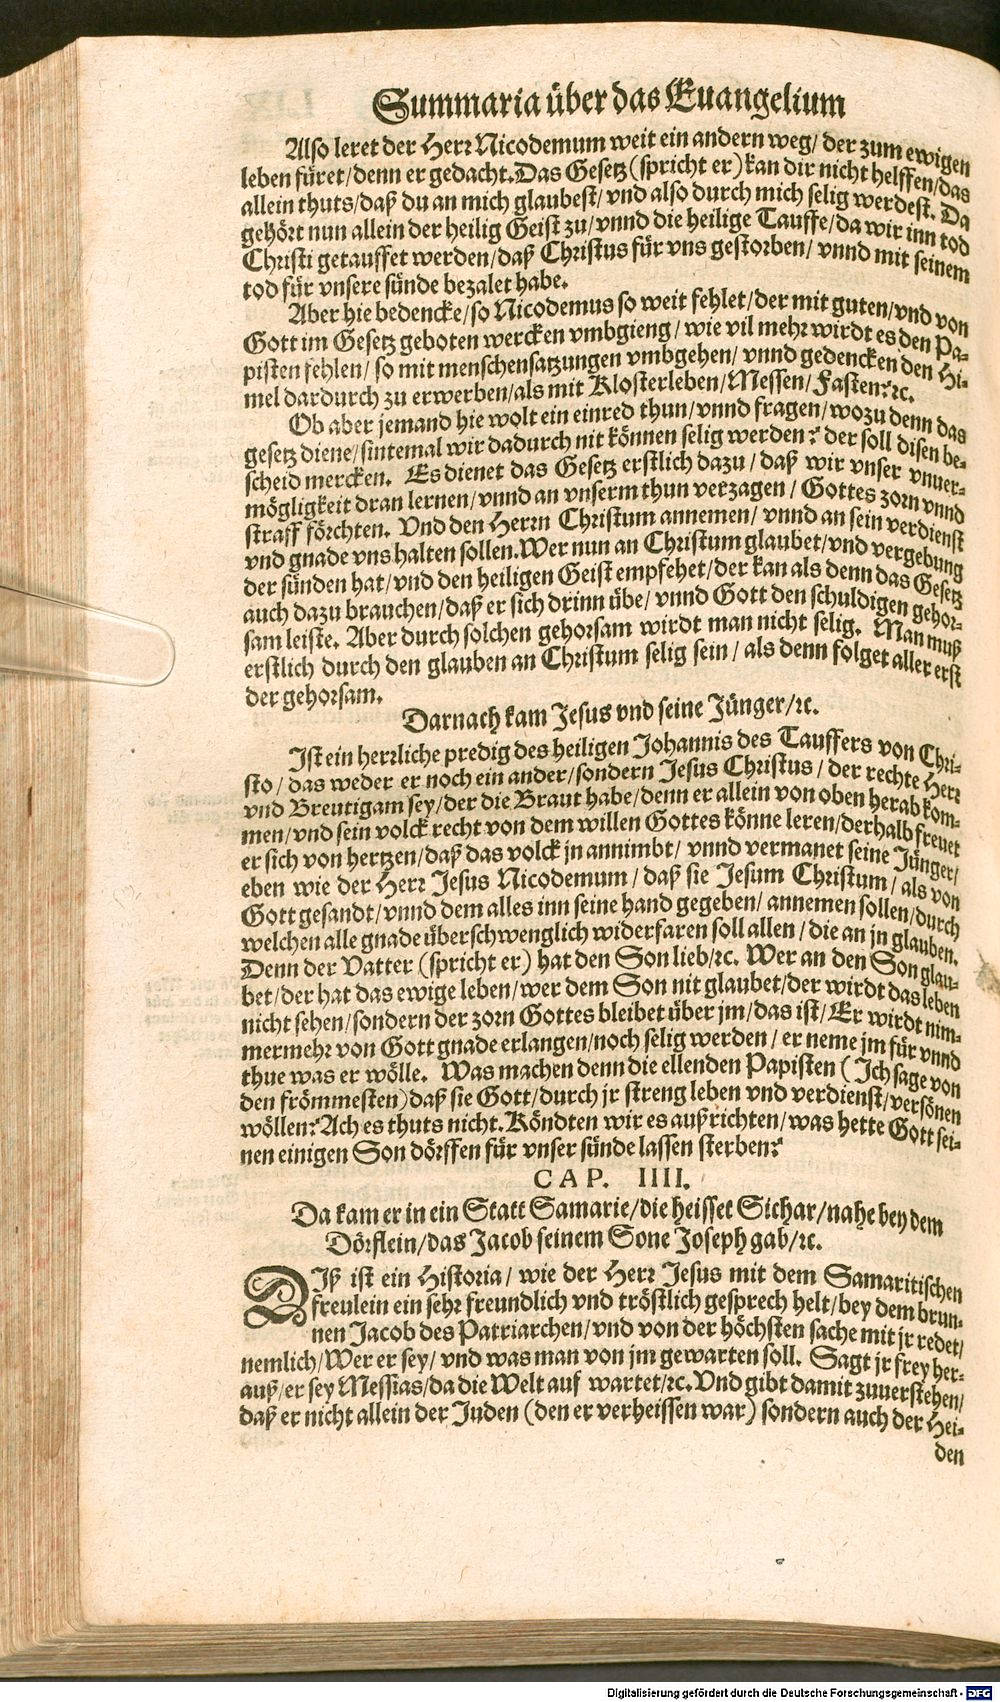 Summaria über das Euangelium
Also leret der Herr Nicodemum weit ein andern weg/ der zum ewigen
leben füret/denn er gedacht. Das Gesetz (spricht er) kan dir nicht helffen/das
allein thuts/daß du an mich glaubest/ vnd also durch mich selig werdest. Da
gehört nun allein der heilig Geist zu/ vnnd die heilige Tauffe/da wir inn tod
Christi getauffet werden/daß Christus für vns gestorben/ vnnd mit seinem
tod für vnsere sünde bezalet habe.
Aber hie bedencke/so Nicodemus so weit fehlet/der mit guten/vnd von
Gott im Gesetz geboten wercken vmbgieng/ wie vil mehr wirdt es den Pa-
pisten fehlen/ so mit menschensatzungen vmbgehen/ vnnd gedencken den Hi-
mel dardurch zu erwerben/als mit Klosterleben/Messen/ Fasten?ꝛc.
Ob aber jemand hie wolt ein einred thun/vnnd fragen/wozu denn das
gesetz diene/sintemal wir dadurch nit können selig werden? der soll disen be-
scheid mercken. Es dienet das Gesetz erstlich dazu/ daß wir vnser vnuer-
mögligkeit dran lernen/vnnd an vnserm thun verzagen/ Gottes zorn vnnd
straff förchten. Vnd den Herrn Christum annemen/ vnnd an sein verdienst
vnd gnade vns halten sollen. Wer nun an Christum glaubet/vnd vergebung
der sünden hat/vnd den heiligen Geist empfehet/der kan als denn das Gesetz
auch dazu brauchen/daß er sich drinn übe/ vnnd Gott den schuldigen gehor-
sam leiste. Aber durch solchen gehorsam wirdt man nicht selig. Man muß
erstlich durch den glauben an Christum selig sein/ als denn folget aller erst
der gehorsam.
Darnach kam Jesus vnd seine Jünger/ꝛc.
Ist ein herrliche predig des heiligen Johannis des Tauffers von Chri-
sto/ das weder er noch ein ander/sondern Jesus Christus/ der rechte Herr
vnd Breutigam sey/der die Braut habe/denn er allein von oben herab kom-
men/vnd sein volck recht von dem willen Gottes könne leren/derhalb freuet
er sich von hertzen/daß das volck jn annimbt/ vnnd vermanet seine Jünger/
eben wie der Herr Jesus Nicodemum/ daß sie Jesum Christum/ als von
Gott gesandt/vnnd dem alles inn seine hand gegeben/ annemen sollen/durch
welchen alle gnade überschwenglich widerfaren soll allen/ die an jn glauben.
Denn der Vatter (spricht er) hat den Son lieb/ꝛc. Wer an den Son glau-
bet/der hat das ewige leben/wer dem Son nit glaubet/der wirdt das leben
nicht sehen/sondern der zorn Gottes bleibet über jm/das ist/ Er wirdt nim-
mermehr von Gott gnade erlangen/noch selig werden/ er neme jm für vnnd
thue was er wölle. Was machen denn die ellenden Papisten (Ich sage von
den frömmesten)daß sie Gott/durch jr streng leben vnd verdienst/versönen
wöllen? Ach es thuts nicht. Köndten wir es außrichten/was hette Gott sei-
nen einigen Son dörffen für vnser sünde lassen sterben?
CAP. IIII.
Da kam er in ein Statt Samarie/die heisset Sichar/nahe bey dem
Dörflein/das Jacob seinem Sone Joseph gab/ꝛc.
DIß ist ein Historia/ wie der Herr Jesus mit dem Samaritischen
freulein ein sehr freundlich vnd tröstlich gesprech helt/bey dem brun-
nen Jacob des Patriarchen/vnd von der höchsten sache mit jr redet/
nemlich/Wer er sey/ vnd was man von jm gewarten soll. Sagt jr frey her-
auß/er sey Messias/da die Welt auf wartet/ꝛc. Vnd gibt damit zuuerstehen/
daß er nicht allein der Juden (den er verheissen war) sondern auch der Hei-
den
Digitalisierung gefördert durch die Deutsche Forschungsgemeinschaft - DFG